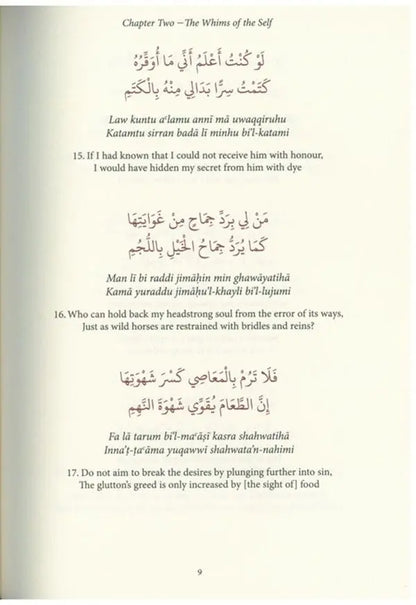 Chapter Two — The Whims of the Self
لَوْ كُنْتُ أَعْلَمُ أَنِّي مَا أُوَقِّرُهُ
كَتَمْتُ سِرًّا بَدَالِي مِنْهُ بِالْكَتَمِ
Law kuntu aʿlamu annī mā uwaqqiruhu
Katamtu sirran badā lī minhu bi'l-katami
15. If I had known that I could not receive him with honour,
I would have hidden my secret from him with dye
مَنْ لِي بِرَدِّ جِمَاحٍ مِنْ غَوَايَتِهَا
كَمَا يُرَدُّ جِمَاحُ الْخَيْلِ بِاللُّجُمِ
Man lī bi raddi jimāḥin min ghawāyatihā
Kamā yuraddu jimāḥu'l-khayli bi'l-lujumi
16. Who can hold back my headstrong soul from the error of its ways,
Just as wild horses are restrained with bridles and reins?
فَلَا تَرُمْ بِالْمَعَاصِي كَسْرَ شَهْوَتِهَا
إِنَّ الطَّعَامَ يُقَوِّي شَهْوَةَ النَّهِمِ
Fa lā tarum bi'l-maʿāṣī kasra shahwatihā
Inna'ṭ-ṭaʿāma yuqawwī shahwata'n-nahimi
17. Do not aim to break the desires by plunging further into sin,
The glutton's greed is only increased by [the sight of] food
9